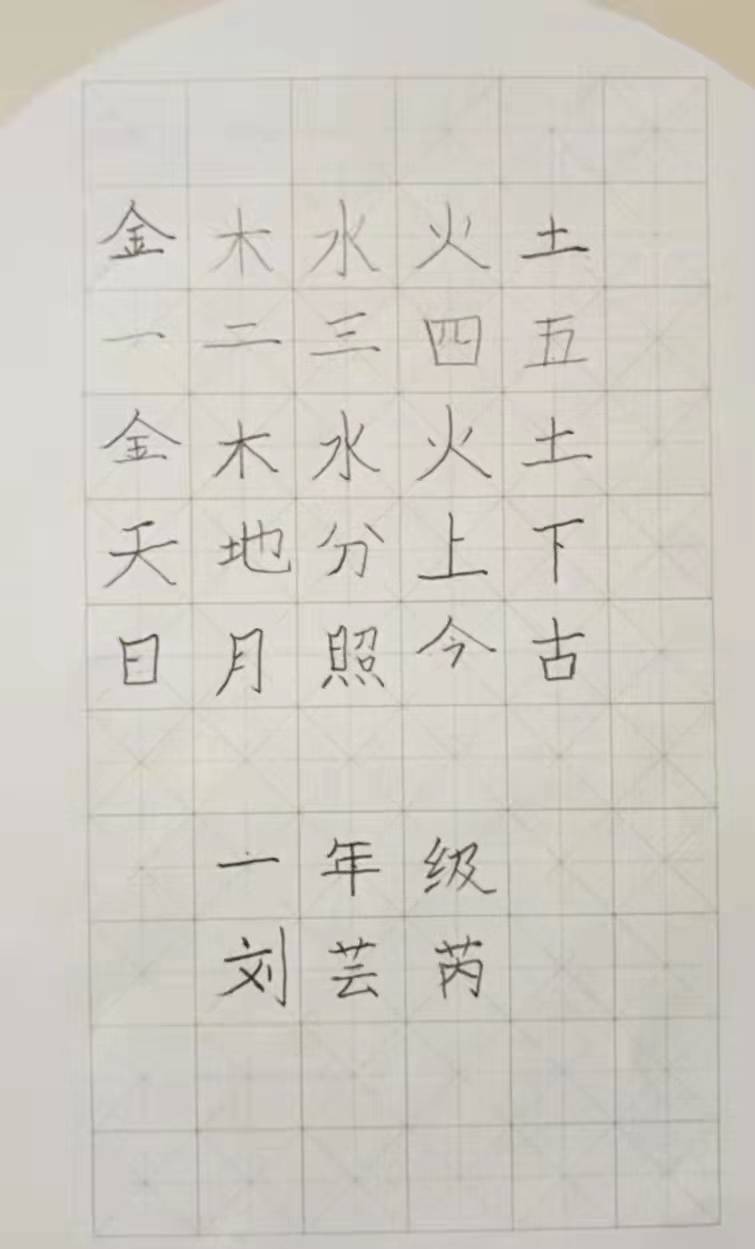 金木水火土
一二三四五
金木水火土
天地分上下
日月照今古
一年级
刘芸芮